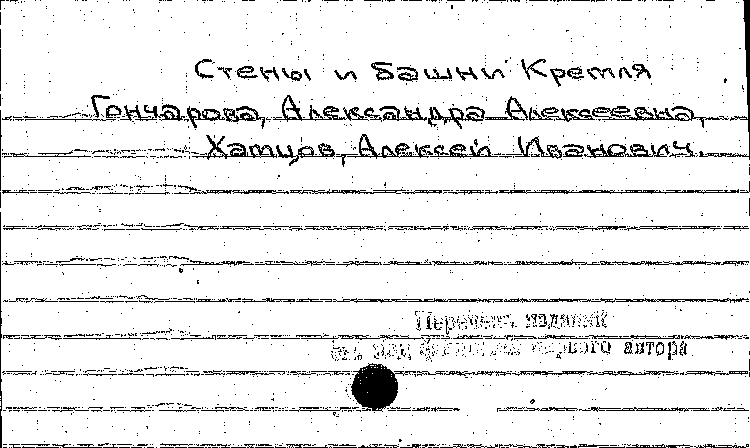 Стены и башни Кремля
Гончарова, Александра Алексеевна,
Хамцов, Алексей Иванович.
Перечень изданий
см. под фамилией первого автора